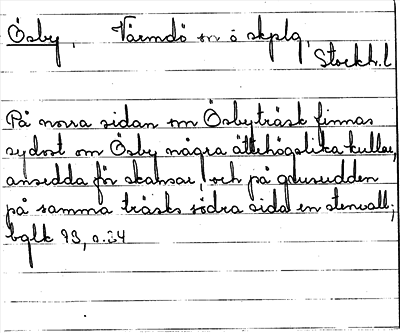 Ösby, Värmdö sn o skplg,
Stockh.l
På norra sidan om Ösbyträsk finnas
sydost om Ösby några ättehögslika kullar,
ansedda för skansar, och på grusudden
på samma träsks södra sida en stenvall;
bglk 93, s.34